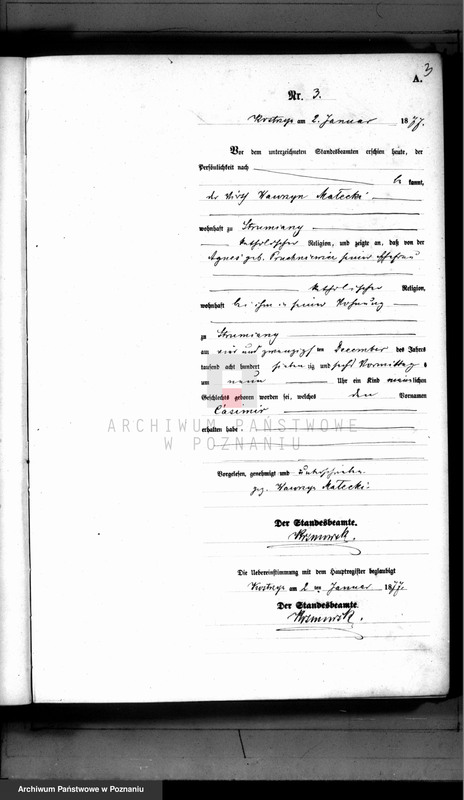 3
A.
Nr. 3.
am 2. Januar 1877.
Vor dem unterzeichneten Standesbeamten erschien heute, der
Persönlichkeit nach
be kannt,
der Wirth Wawrzyn Małecki
wohnhaft zu Strumiany
katholischer Religion, und zeigte an, daß von der
Agnes geb. seiner Ehefrau
katholischer Religion,
wohnhaft bei ihm in seiner Wohnung
zu Strumiany
am vier und zwanzigsten December des Jahres
tausend acht hundert sieben zig und sechs Vormittags
um neun Uhr ein Kind männlichen
Geschlechts geboren worden sei, welches den Vornamen
Casimir
erhalten habe.
ARCHIWUM PAŃSTWOWE
W POZNANIU
Vorgelesen, genehmigt und unterschrieben
gez. Wawrzyn Małecki
Der Standesbeamte.
Die Uebereinstimmung mit dem Hauptregister beglaubigt
am 2 ten Januar 1877.
Der Standesbeamte.
Archiwum Państwowe w Poznaniu